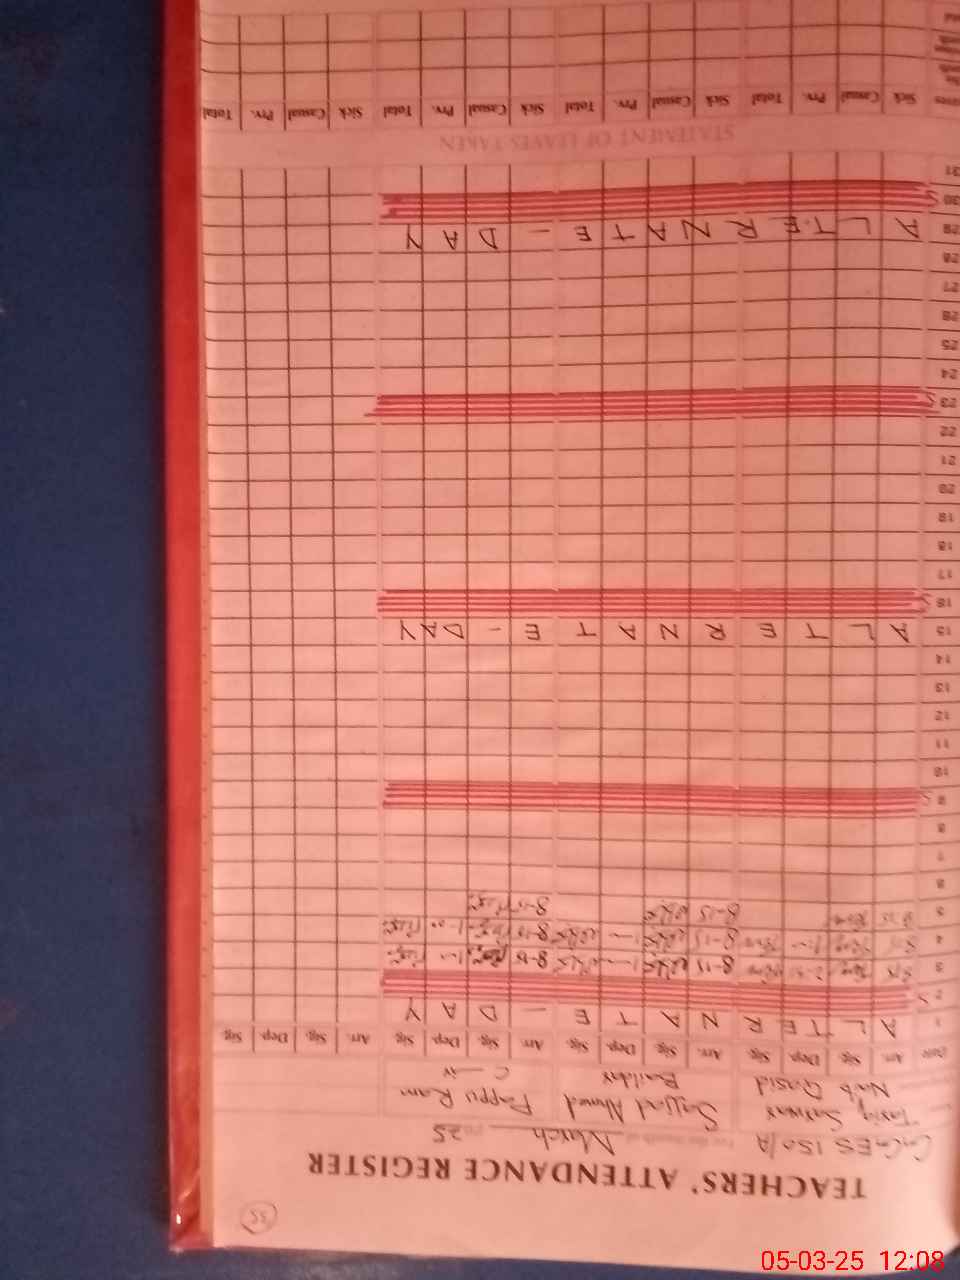 55
TEACHERS' ATTENDANCE REGISTER
GGES 150/A For the month of March 2025
Tariq Sarwar Sajjad Ahmed Pappu Ram
Naib Qasid Baildar C-iv
Date Arr. Sig. Dep. Sig. Arr. Sig. Dep. Sig. Arr. Sig. Dep. Sig. Arr. Sig. Dep. Sig.
1 A L T E R N A T E - D A Y
2 S
3 8-15 8-15 8-15
4 8-15 8-15 8-15 1-00
5 8-15 8-15 8-15
6
7
8
9 S
10
11
12
13
14
15 A L T E R N A T E - D A Y
16 S
17
18
19
20
21
22
23 S
24
25
26
27
28
29 A L T E R N A T E - D A Y
30 S
31
STATEMENT OF LEAVES TAKEN
Sick Casual Prv. Total Sick Casual Prv. Total Sick Casual Prv. Total Sick Casual Prv. Total
05-03-25 12:08